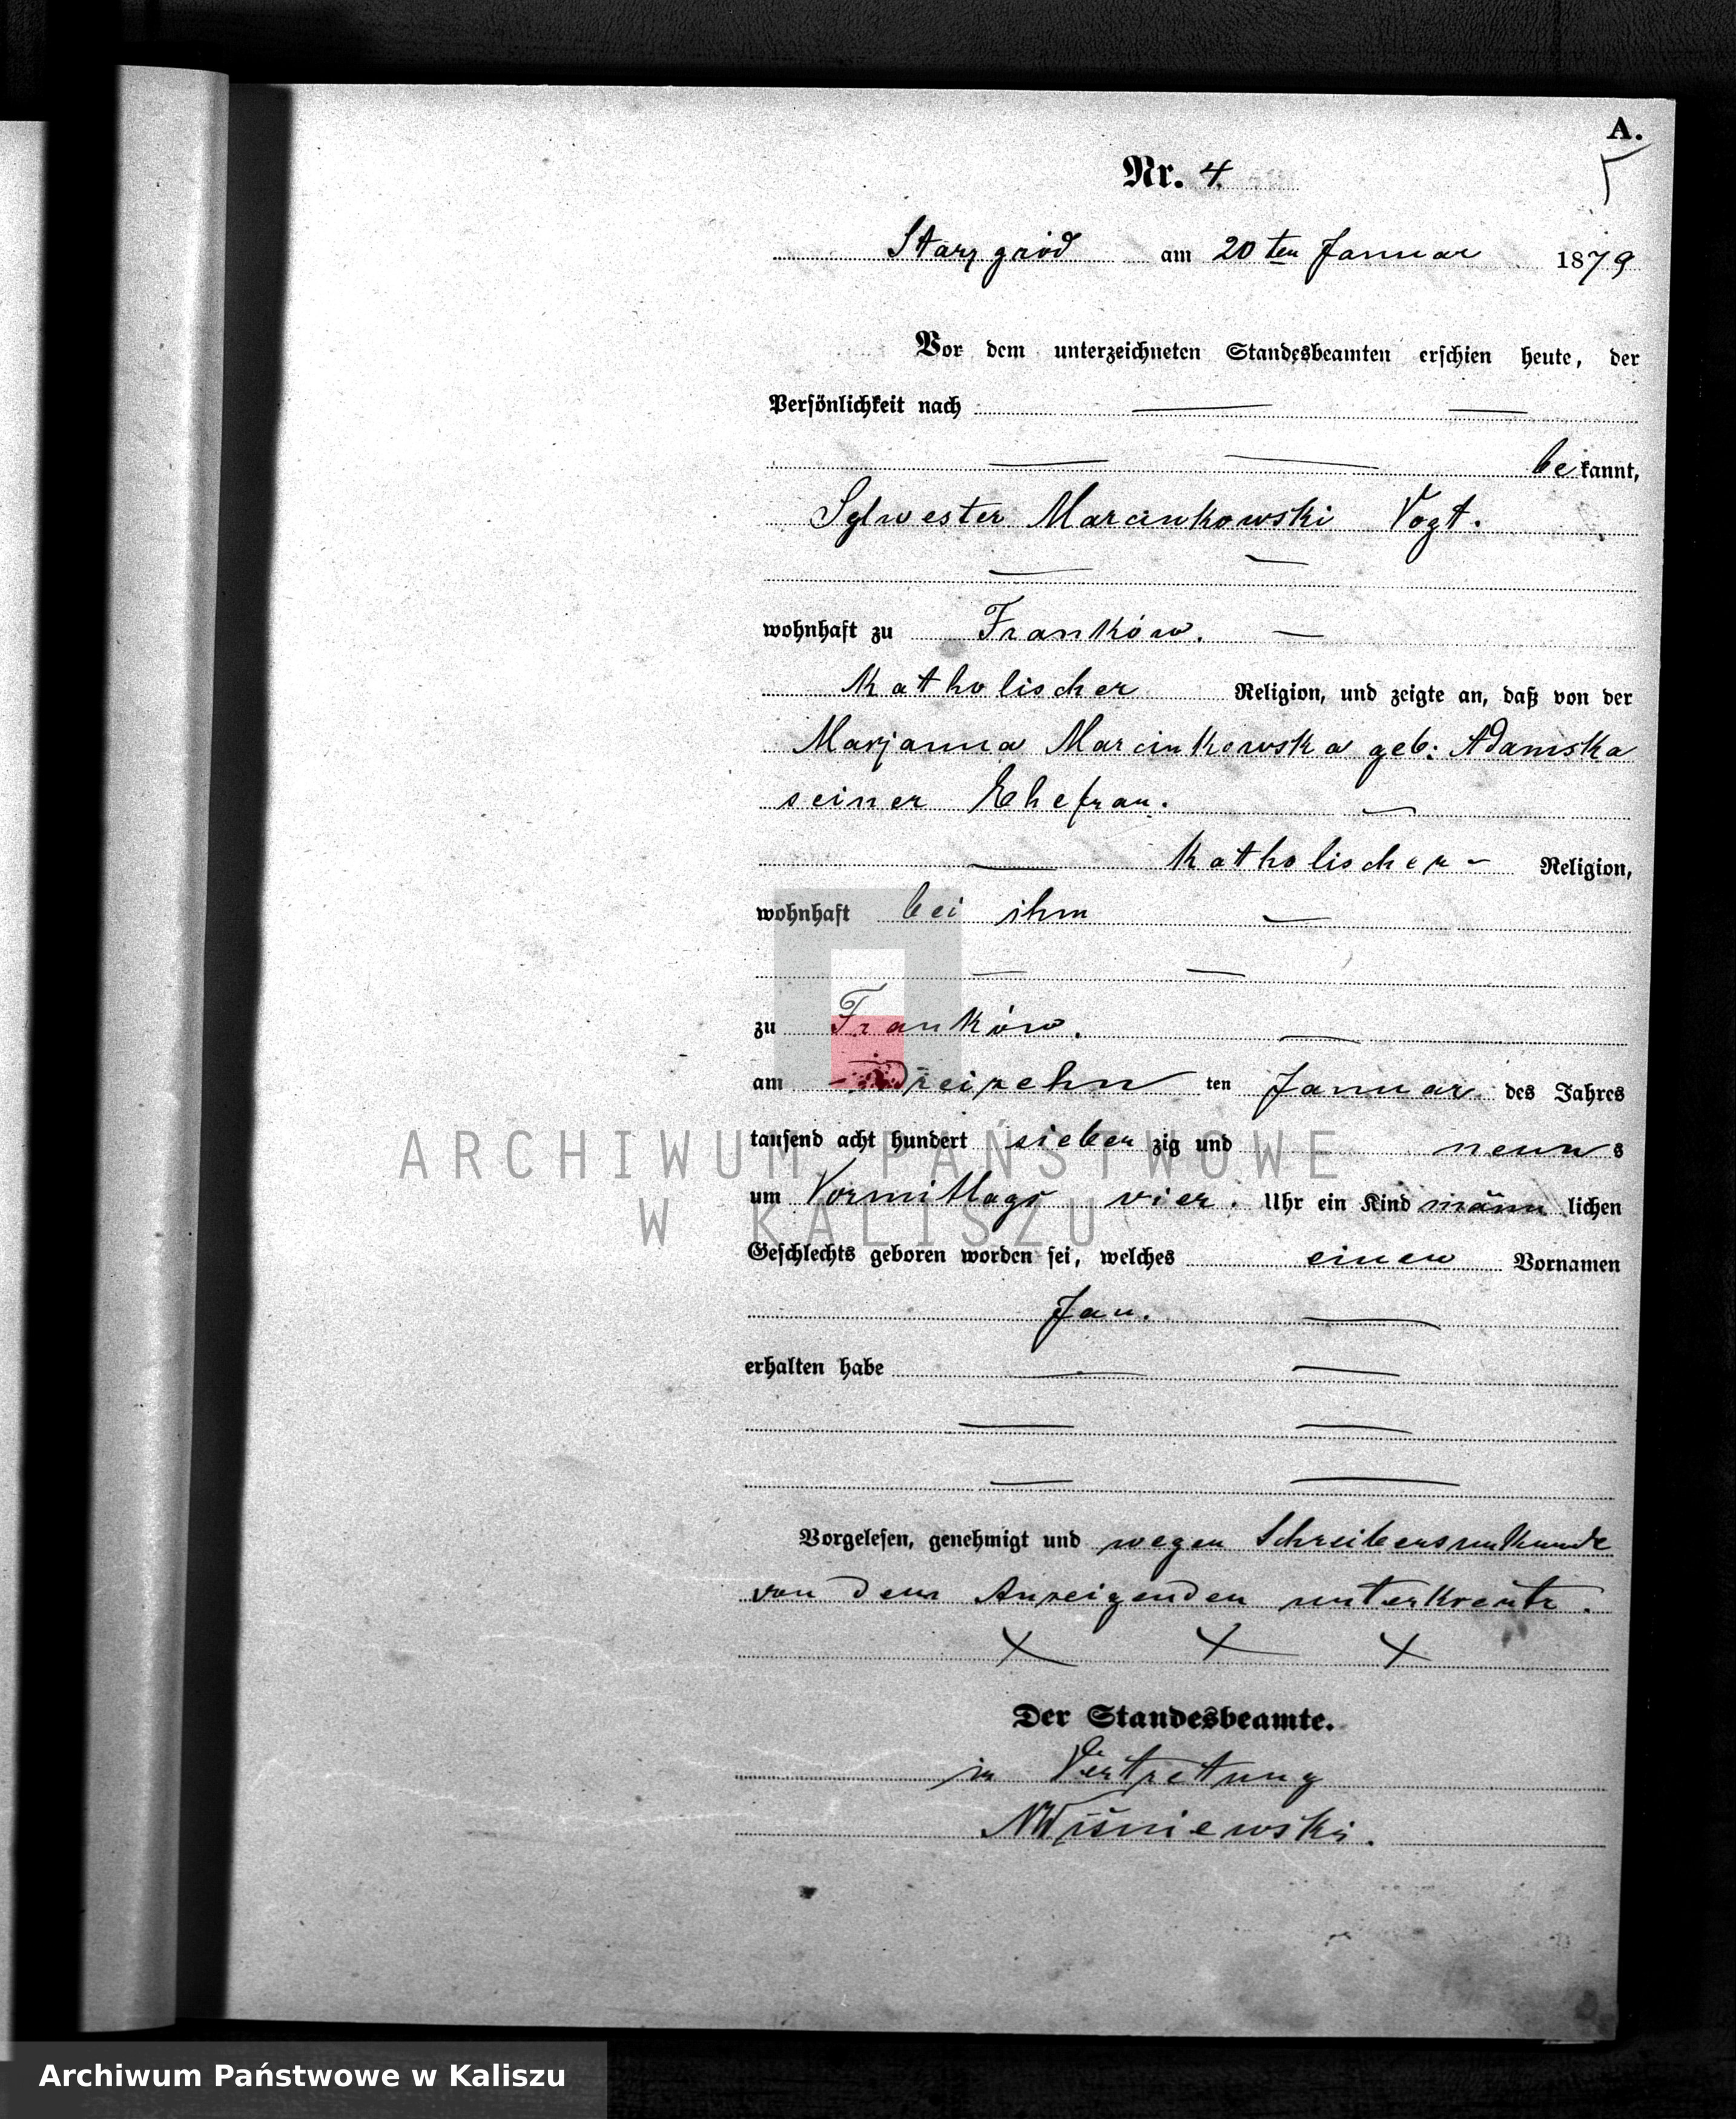 A.
Nr. 4.
5
Starygród am 20ten Januar 1879
Vor dem unterzeichneten Standesbeamten erschien heute, der
Persönlichkeit nach
bekannt,
Sylwester Marcinkowski Vogt.
wohnhaft zu Franków.
Katholischer Religion, und zeigte an, daß von der
Marjanna Marcinkowska geb: Adamska
seiner Ehefrau.
Katholischer Religion,
wohnhaft bei ihm
zu Franków.
am Dreizehn ten Januar des Jahres
tausend acht hundert sieben zig und neun s
um Vormittags vier. Uhr ein Kind männ lichen
Geschlechts geboren worden sei, welches einen Vornamen
Jan.
erhalten habe
Vorgelesen, genehmigt und wegen Schreibensunkunde
von dem Anzeigenden unterkreutz.
X X X
Der Standesbeamte.
in Vertretung
NWiśniewski.
ARCHIWUM PAŃSTWOWE
W KALISZU
Archiwum Państwowe w Kaliszu